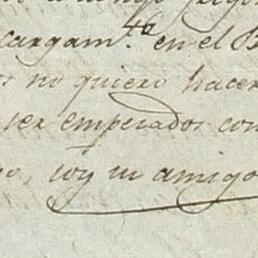 cargam.to en el B
no quiero hacer
ser emperados con
soy su amigo